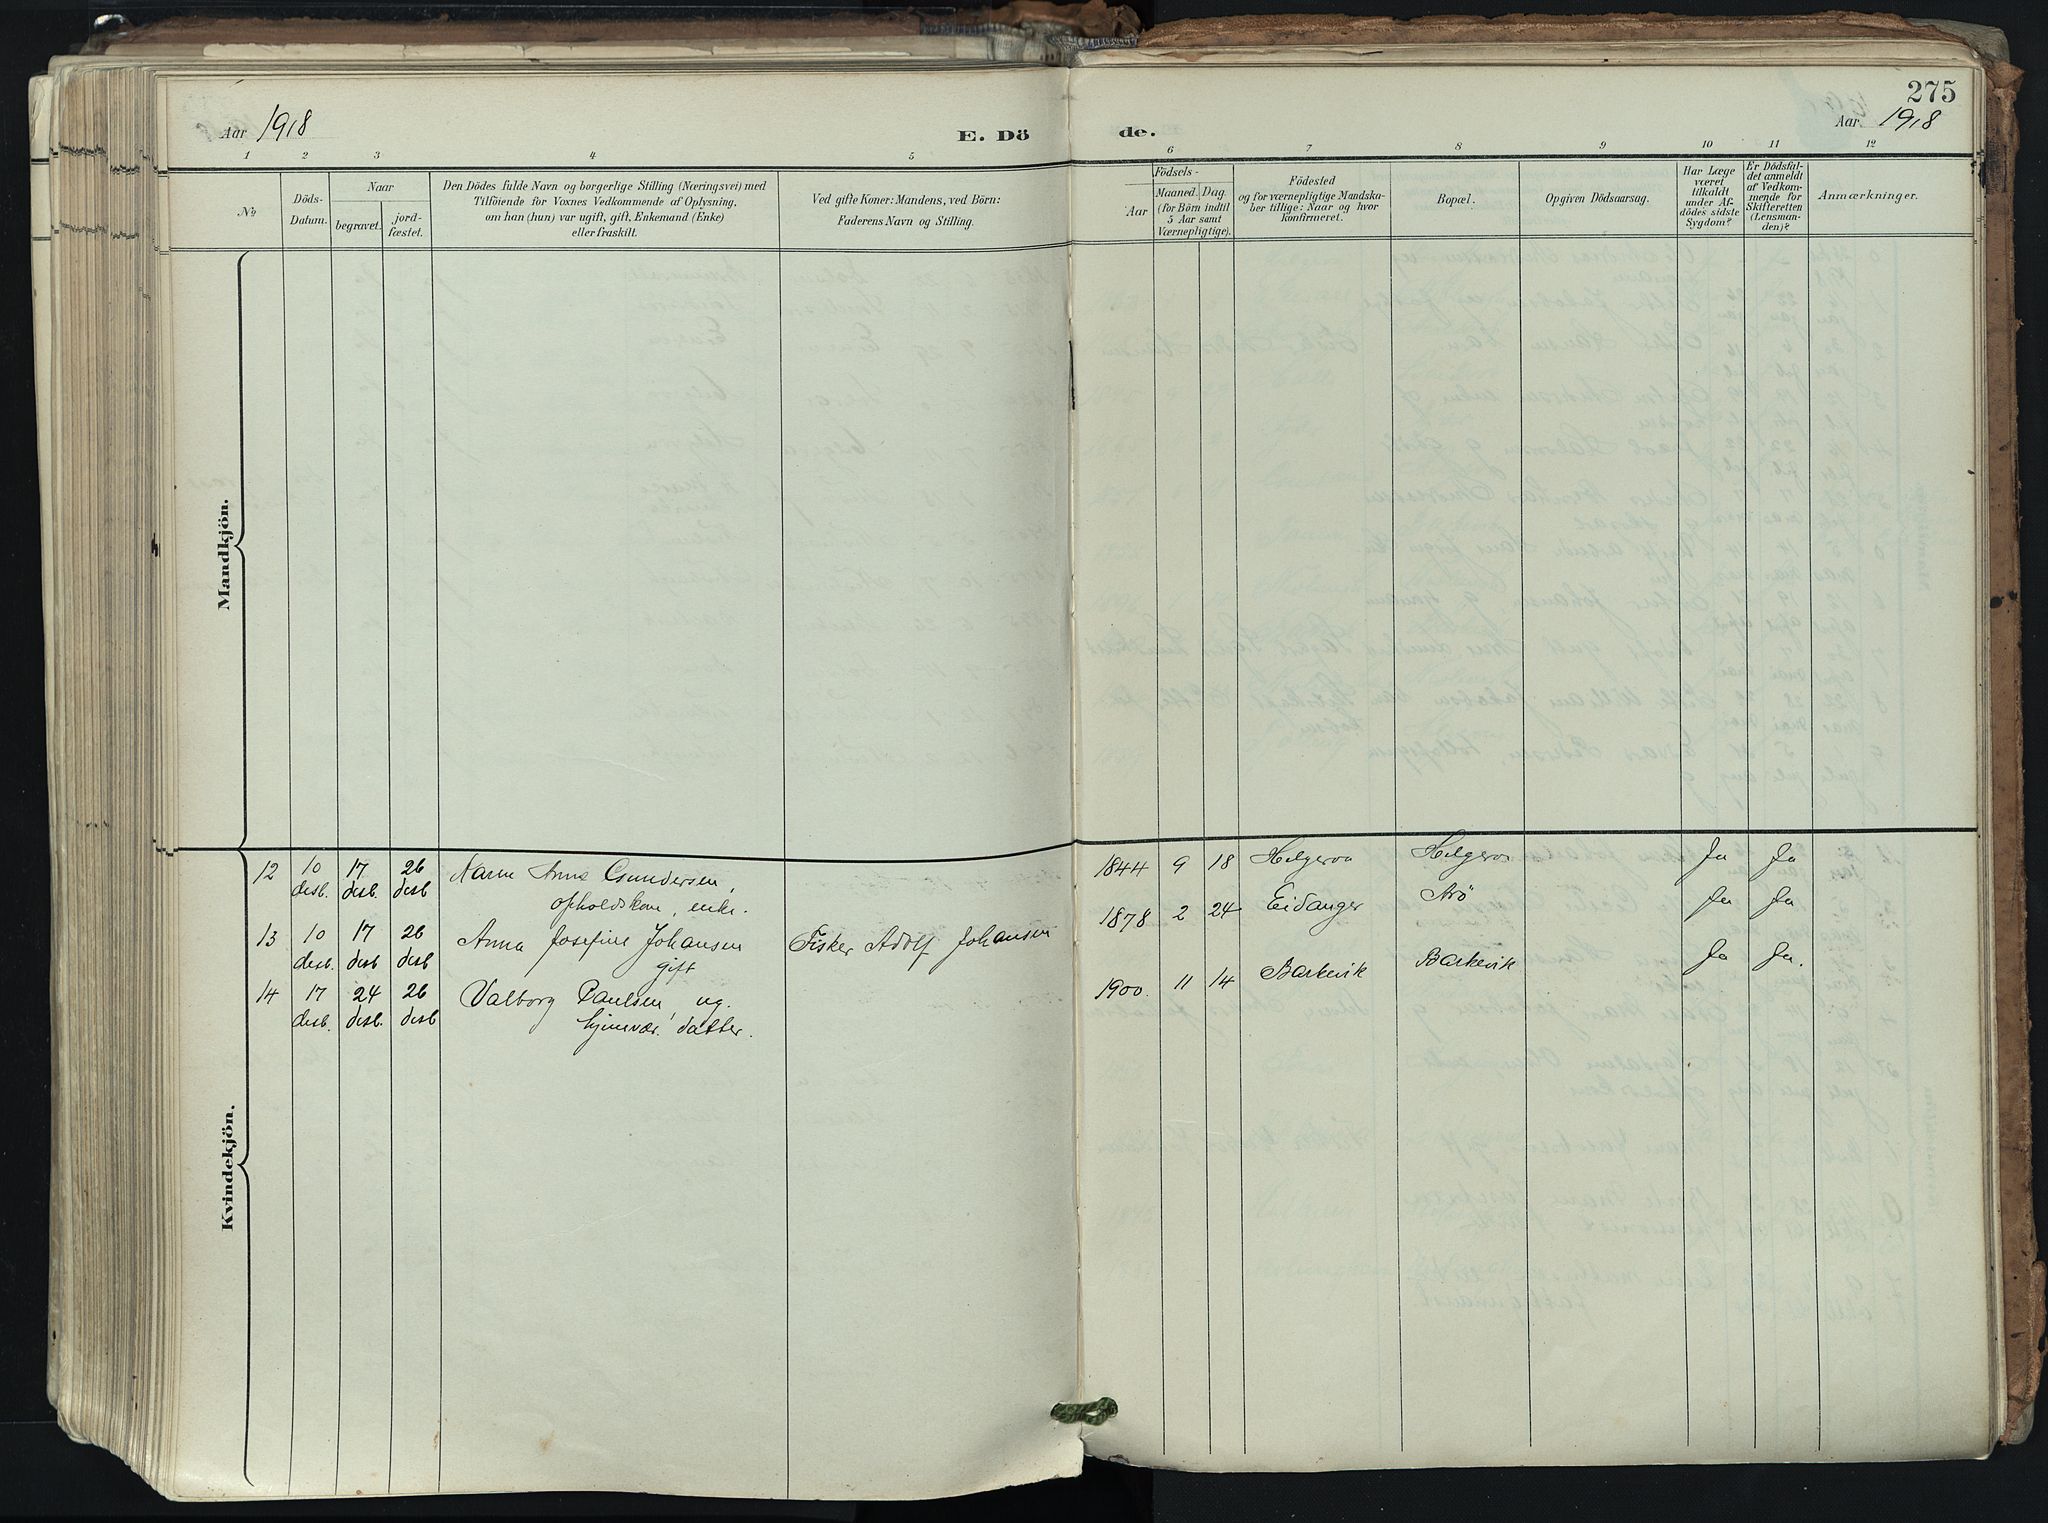 275
Aar 1918
E. Dö
de.
Aar 1918
1 2 3 4 5 6 7 8 9 10 11 12
No
Döds-
Datum.
Naar
begravet.
jord-
fæstet.
Den Dödes fulde Navn og borgerlige Stilling (Næringsvei) med
Tilföiende for Voxnes Vedkommende af Oplysning,
om han (hun) var ugift, gift, Enkemand (Enke)
eller fraskilt.
Ved gifte Koner: Mandens, ved Börn:
Faderens Navn og Stilling.
Födsels-
Aar
Maaned. Dag.
(for Börn indtil
5 Aar samt
Værnepligtige).
Födested
og for værnepligtige Mandska-
ber tillige: Naar og hvor
konfirmeret.
Bopæl.
Opgiven Dödsaarsag.
Har Læge
været
tilkaldt
under Af-
dödes sidste
Sygdom?
Er Dödsfal-
det anmeldt
af Vedkom-
mende for
Skifteretten
(Lensman-
den)?
Anmærkninger.
Mandkjön.
Kvindekjön.
12 10 17 26 Karen Anna Gundersen, 1844 9 18 Helgeroa Helgeroa Ja Ja
desb. desb. desb opholdskone, enke.
13 10 17 26 Anna Josefine Johansen Fisker Adolf Johansen 1878 2 24 Eidanger Arö Ja Ja
desb. desb desb gift
14 17 24 26 Valborg Paulsen, ug. 1900. 11 14 Barkevik Barkevik Ja Ja.
desb. desb. desb hjemvær. datter.